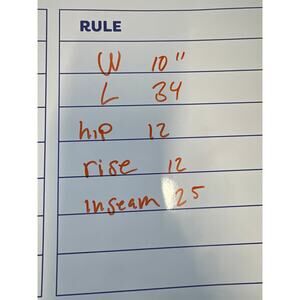 RULE
W 10"
L 34
hip 12
rise 12
inseam 25